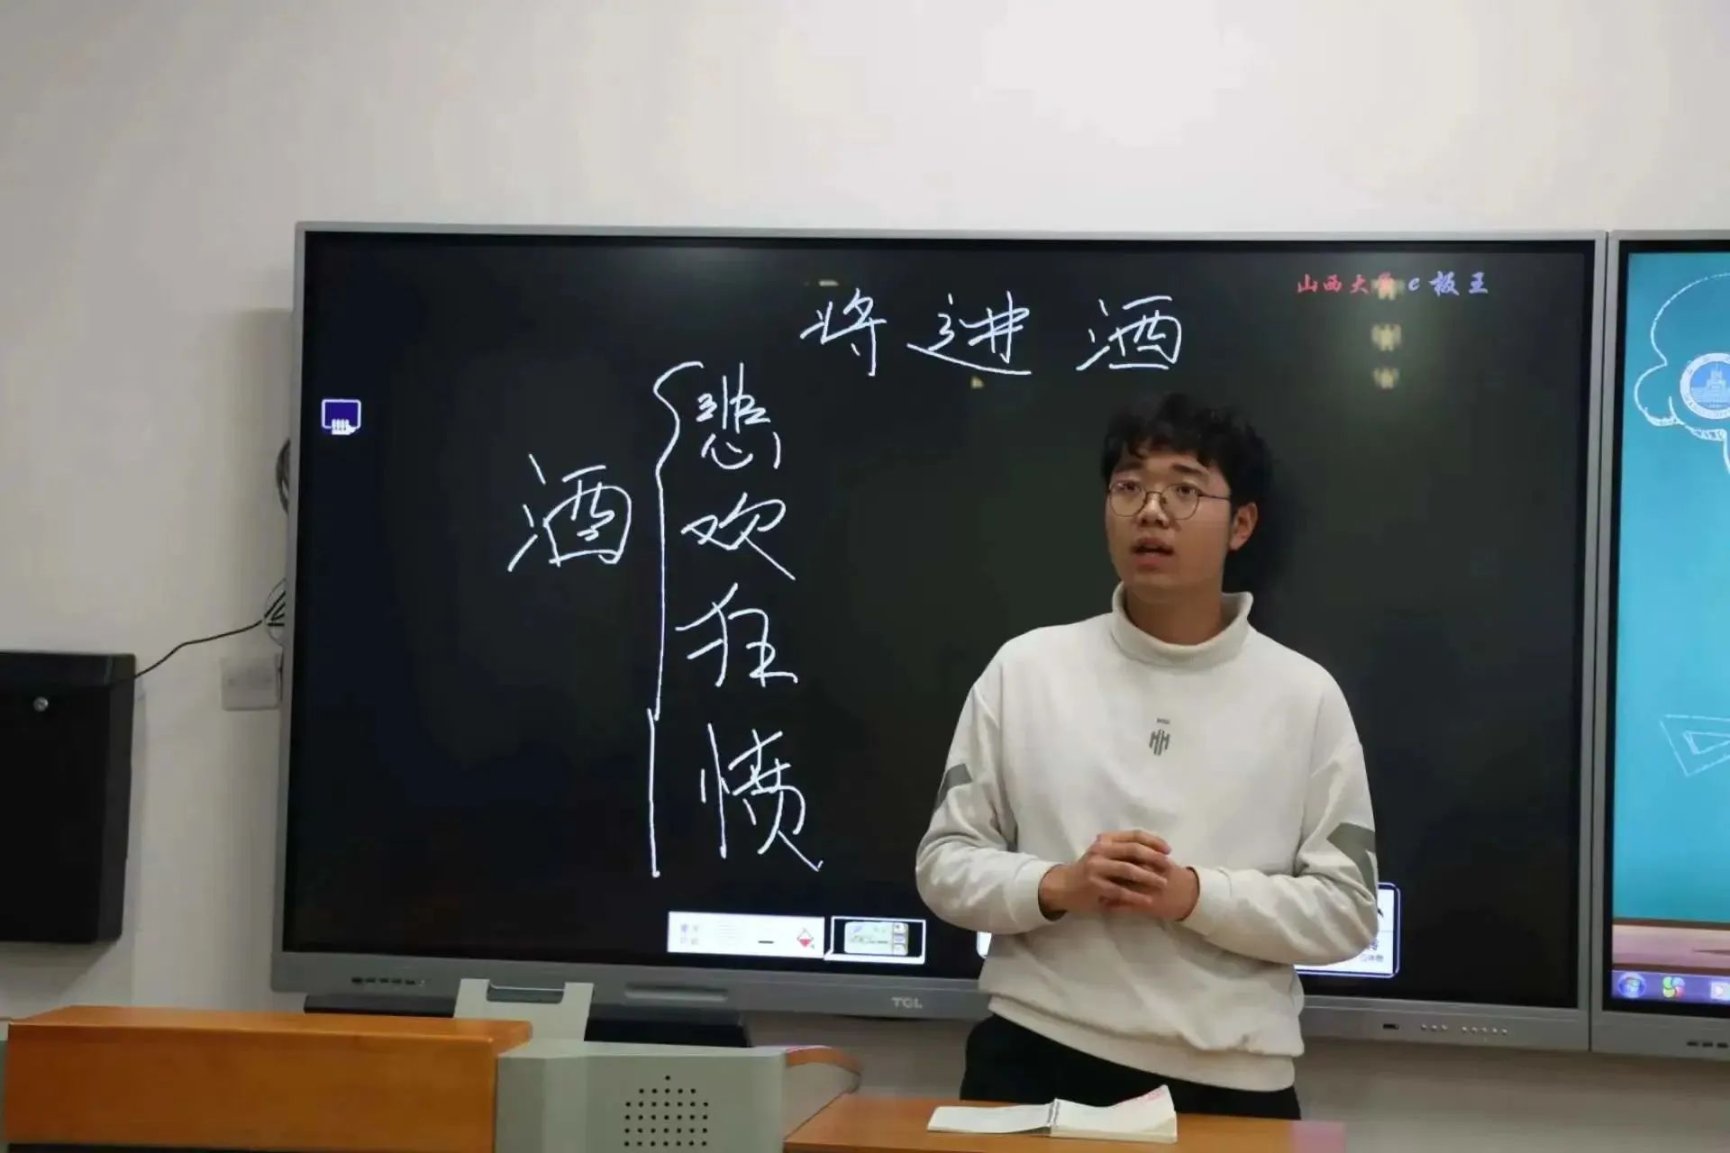 山西大学e板王
将进酒
酒
悲
欢
狂
愤
TCL